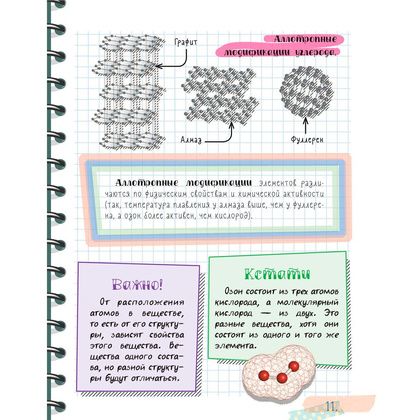 Аллотропные
модификации углерода.
Графит
Алмаз
Фуллерен
Аллотропные модификации элементов разли-
чаются по физическим свойствам и химической активности
(так, температура плавления у алмаза выше, чем у фуллере-
на, а озон более активен, чем кислород).
Важно!
От расположения
атомов в веществе,
то есть от его структу-
ры, зависят свойства
этого вещества. Ве-
щества одного соста-
ва, но разной структу-
ры будут отличаться.
Кстати
Озон состоит из трех атомов
кислорода, а молекулярный
кислород — из двух. Это
разные вещества, хотя они
состоят из одного и того же
элемента.
11